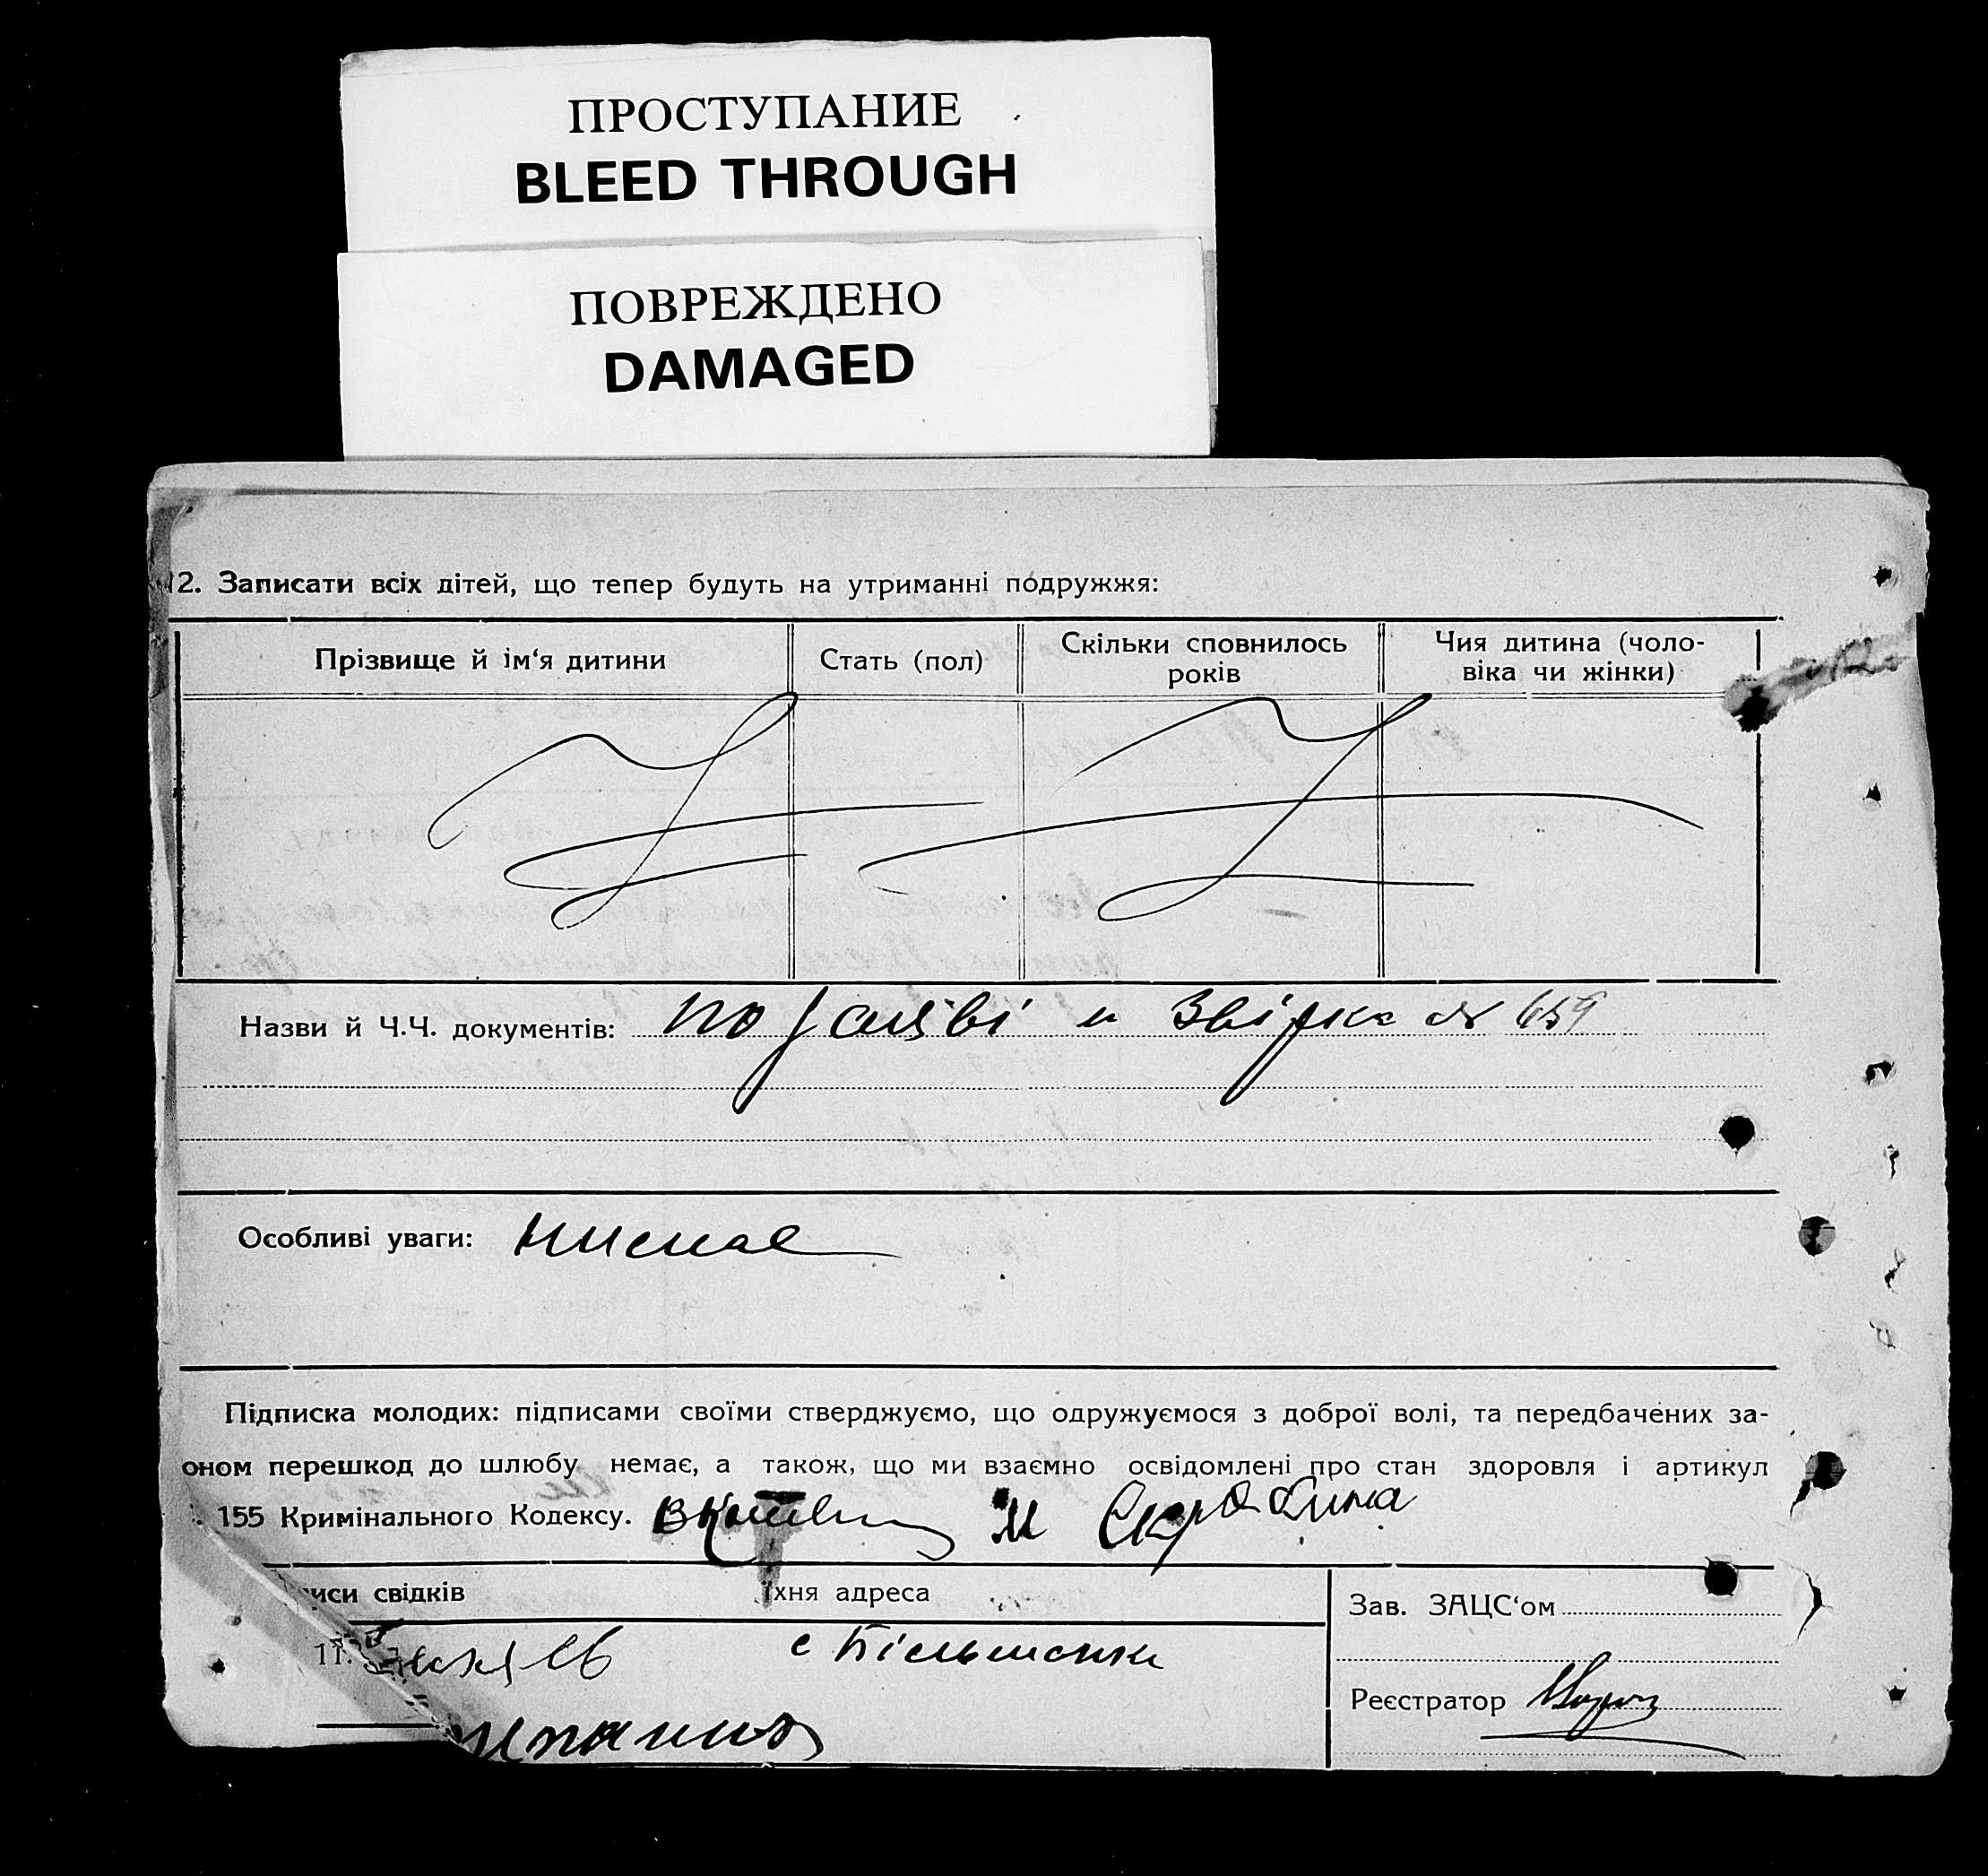 ПРОСТУПАНИЕ
BLEED THROUGH
ПОВРЕЖДЕНО
DAMAGED
12. Записати всіх дітей, що тепер будуть на утриманні подружжя:
Прізвище й ім‘я дитини
Стать (пол)
Скільки сповнилось
років
Чия дитина (чоло-
віка чи жінки)
Назви й Ч.Ч. документів: по заяві и Звірка № 659
Особливі уваги: Нимае
Підписка молодих: підписами своїми стверджуємо, що одружуємося з доброї волі, та передбачених за-
оном перешкод до шлюбу немає, а також, що ми взаємно освідомлені про стан здоровля і артикул
155 Кримінального Кодексу. М
иси свідків
їхня адреса
с
Зав. ЗАЦС‘ом
Реєстратор